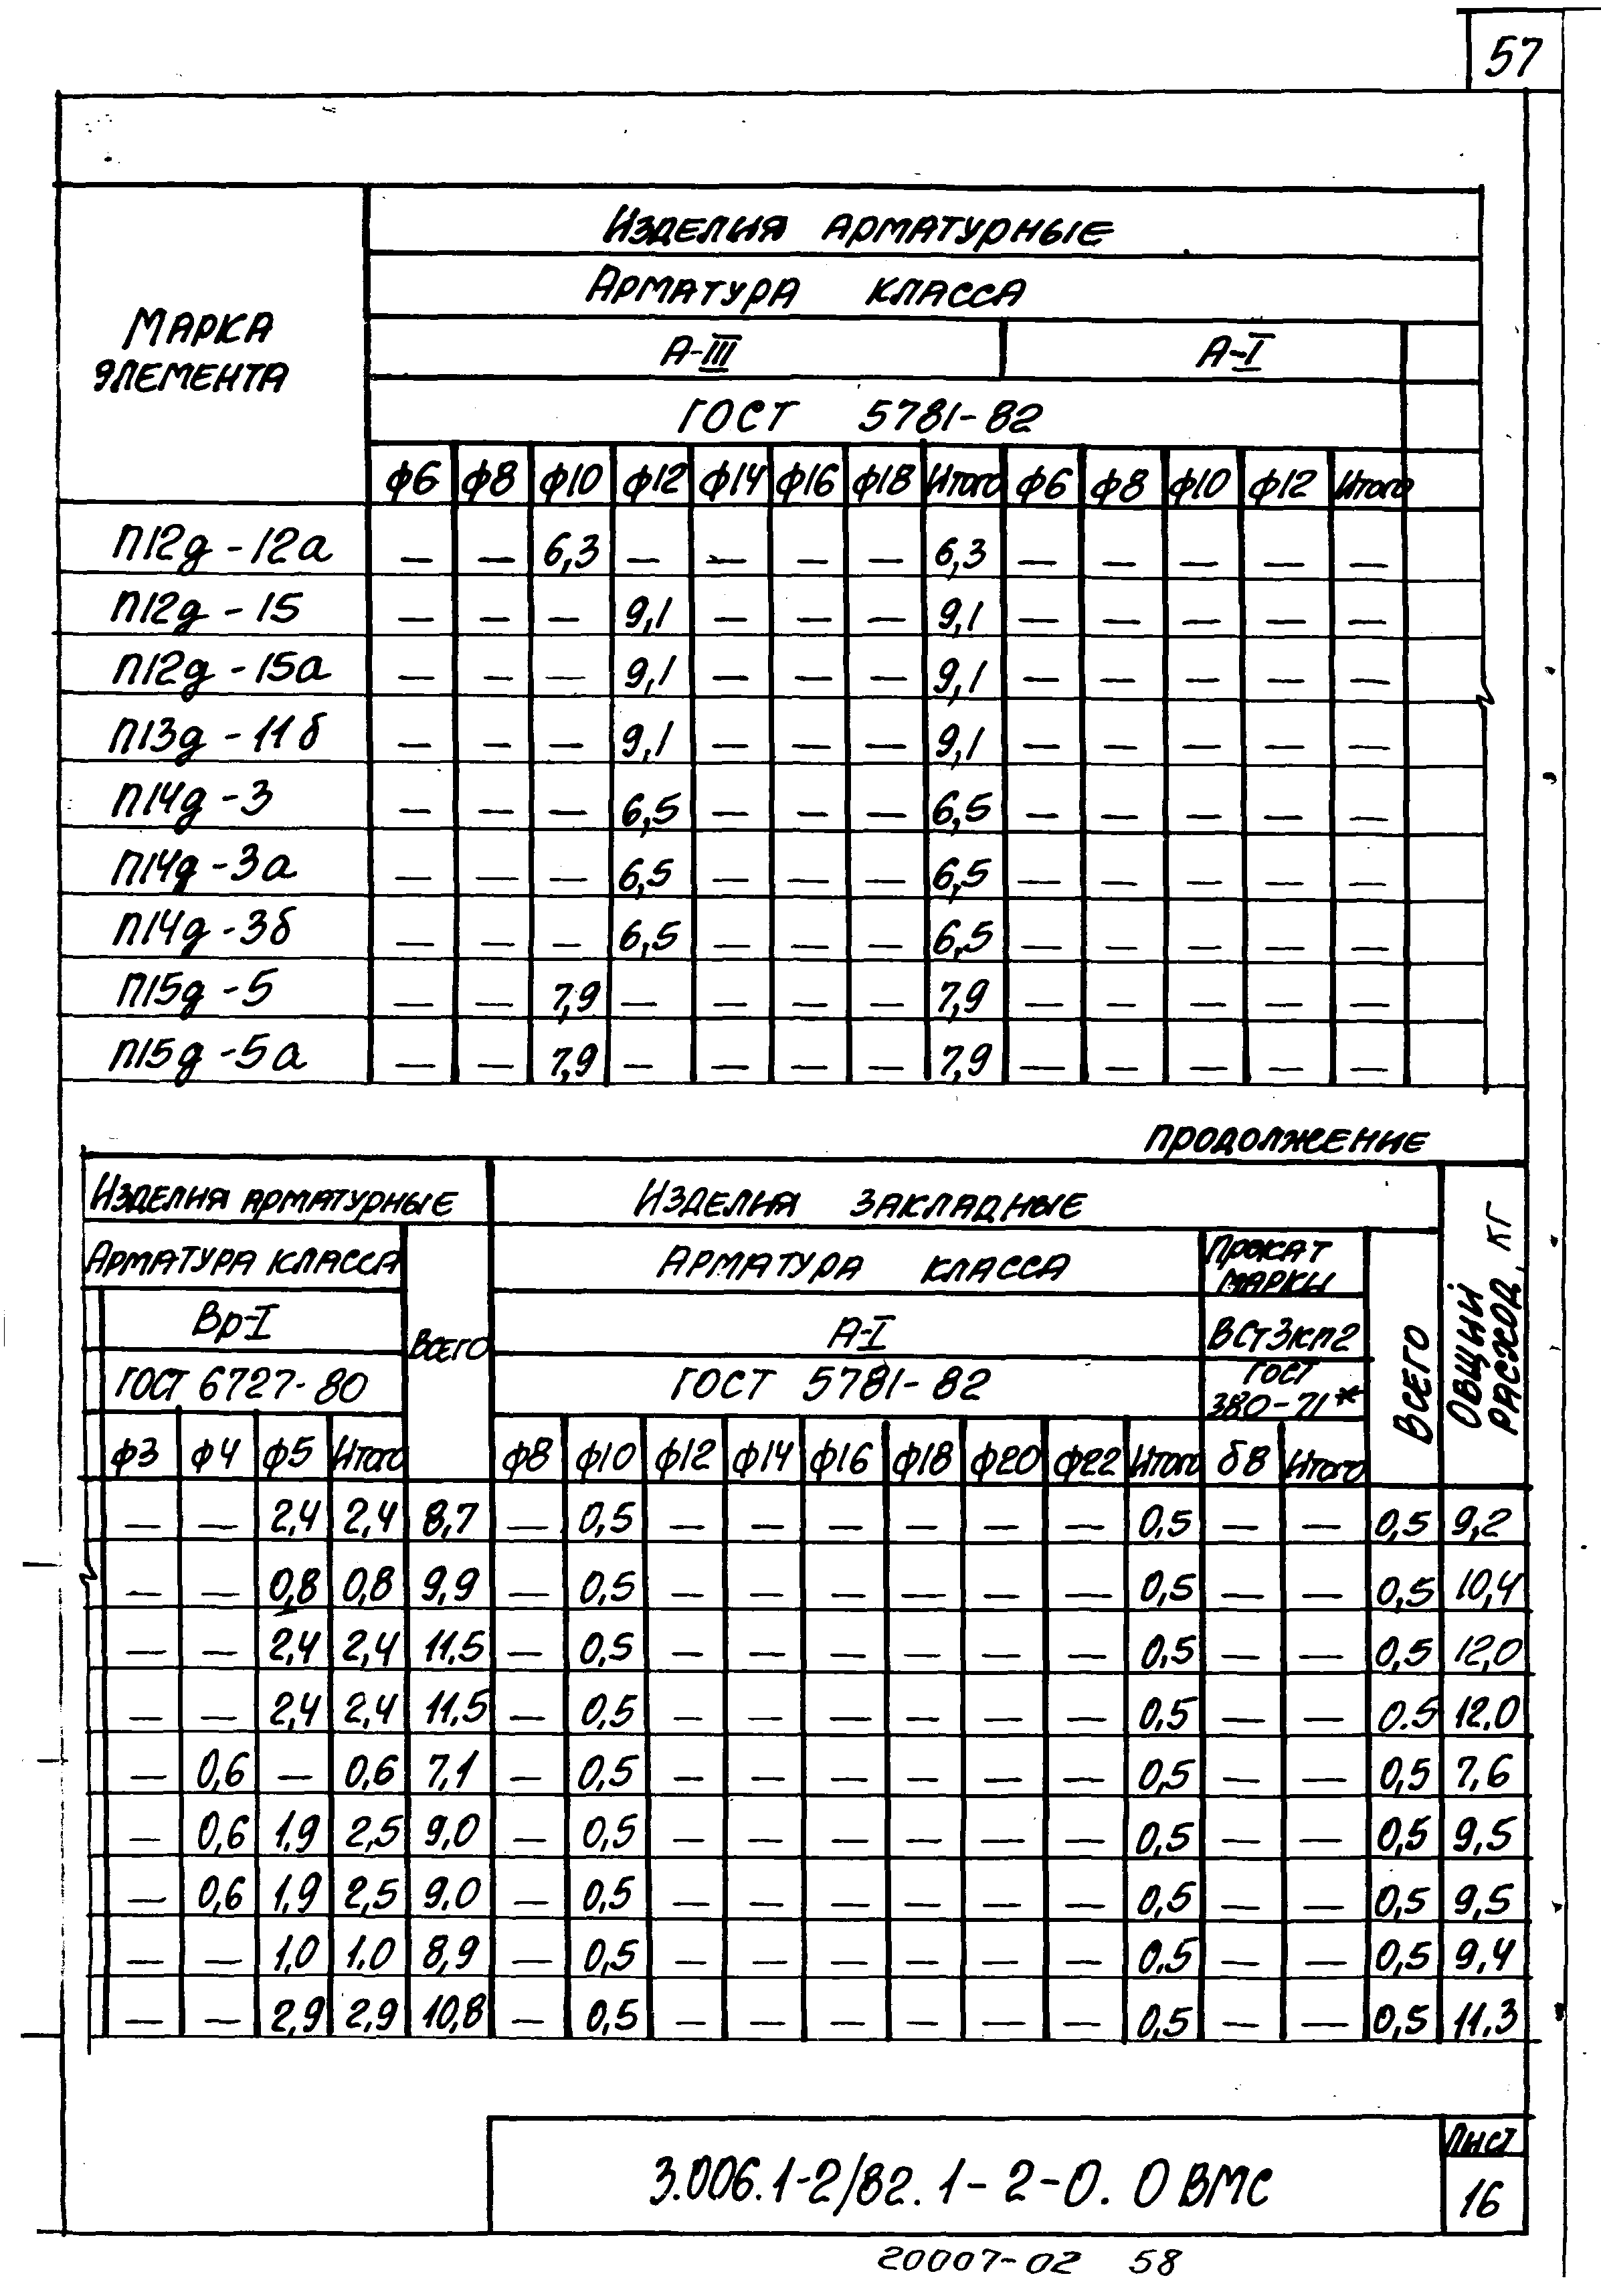 57
Изделия арматурные
Арматура класса
Марка элемента
А-III А-I
ГОСТ 5781-82
ф6 ф8 ф10 ф12 ф14 ф16 ф18 Итого ф6 ф8 ф10 ф12 Итого
П12д-12а — — 6,3 — — — — 6,3 — — — — —
П12д-15 — — — 9,1 — — — 9,1 — — — — —
П12д-15а — — — 9,1 — — — 9,1 — — — — —
П13д-11б — — — 9,1 — — — 9,1 — — — — —
П14д-3 — — — 6,5 — — — 6,5 — — — — —
П14д-3а — — — 6,5 — — — 6,5 — — — — —
П14д-3б — — — 6,5 — — — 6,5 — — — — —
П15д-5 — — 7,9 — — — — 7,9 — — — — —
П15д-5а — — 7,9 — — — — 7,9 — — — — —
продолжение
Изделия арматурные Изделия закладные
Арматура класса Всего Арматура класса Прокат марки Всего Общий расход, кг
Вр-I А-I ВСт3кп2
ГОСТ 6727-80 ГОСТ 5781-82 ГОСТ 380-71*
ф3 ф4 ф5 Итого ф8 ф10 ф12 ф14 ф16 ф18 ф20 ф22 Итого δ8 Итого
— — 2,4 2,4 8,7 — 0,5 — — — — — — 0,5 — — 0,5 9,2
— — 0,8 0,8 9,9 — 0,5 — — — — — — 0,5 — — 0,5 10,4
— — 2,4 2,4 11,5 — 0,5 — — — — — — 0,5 — — 0,5 12,0
— — 2,4 2,4 11,5 — 0,5 — — — — — — 0,5 — — 0.5 12,0
— 0,6 — 0,6 7,1 — 0,5 — — — — — — 0,5 — — 0,5 7,6
— 0,6 1,9 2,5 9,0 — 0,5 — — — — — — 0,5 — — 0,5 9,5
— 0,6 1,9 2,5 9,0 — 0,5 — — — — — — 0,5 — — 0,5 9,5
— — 1,0 1,0 8,9 — 0,5 — — — — — — 0,5 — — 0,5 9,4
— — 2,9 2,9 10,8 — 0,5 — — — — — — 0,5 — — 0,5 11,3
3.006.1-2/82.1-2-0.0 ВМС
Лист
16
20007-02 58